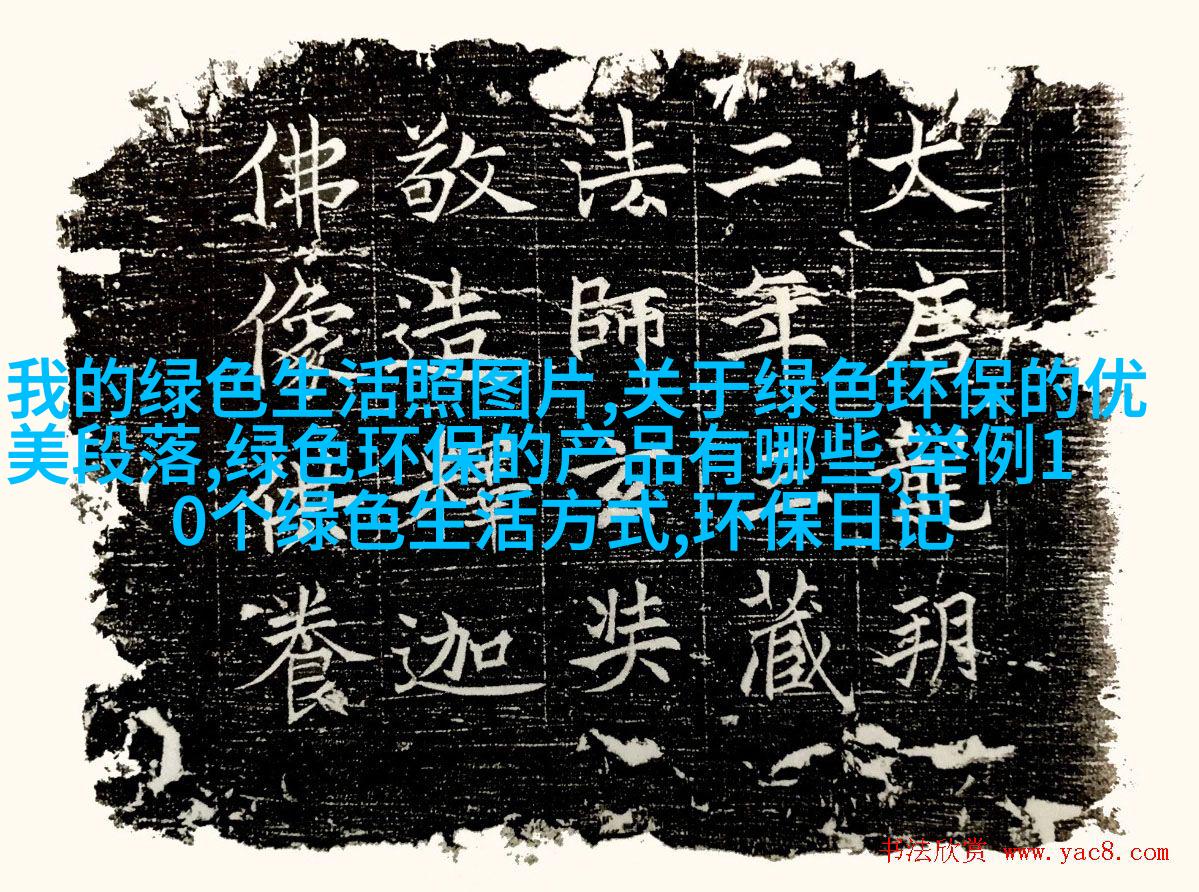 大唐龍朔
二年三藏
法師玄奘
敬造釋迦
佛像供養
我的绿色生活照图片,关于绿色环保的优
美段落,绿色环保的产品有哪些,举例1
0个绿色生活方式,环保日记
书法欣赏 www.yac8.com